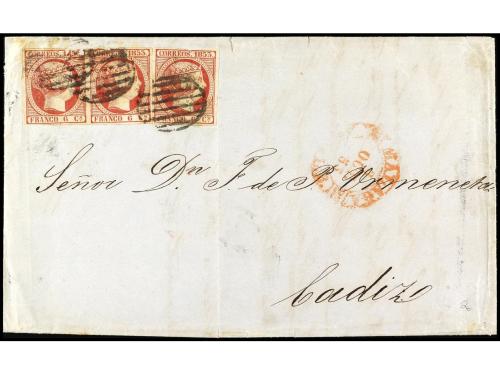 CORREOS. 1853 CORREOS. 1853 CORREOS. 1853
FRANCO 6 Cs. FRANCO 6 FRANCO 6 Cs.
Señor Dn. F. de P. Urmeneta
Cadiz